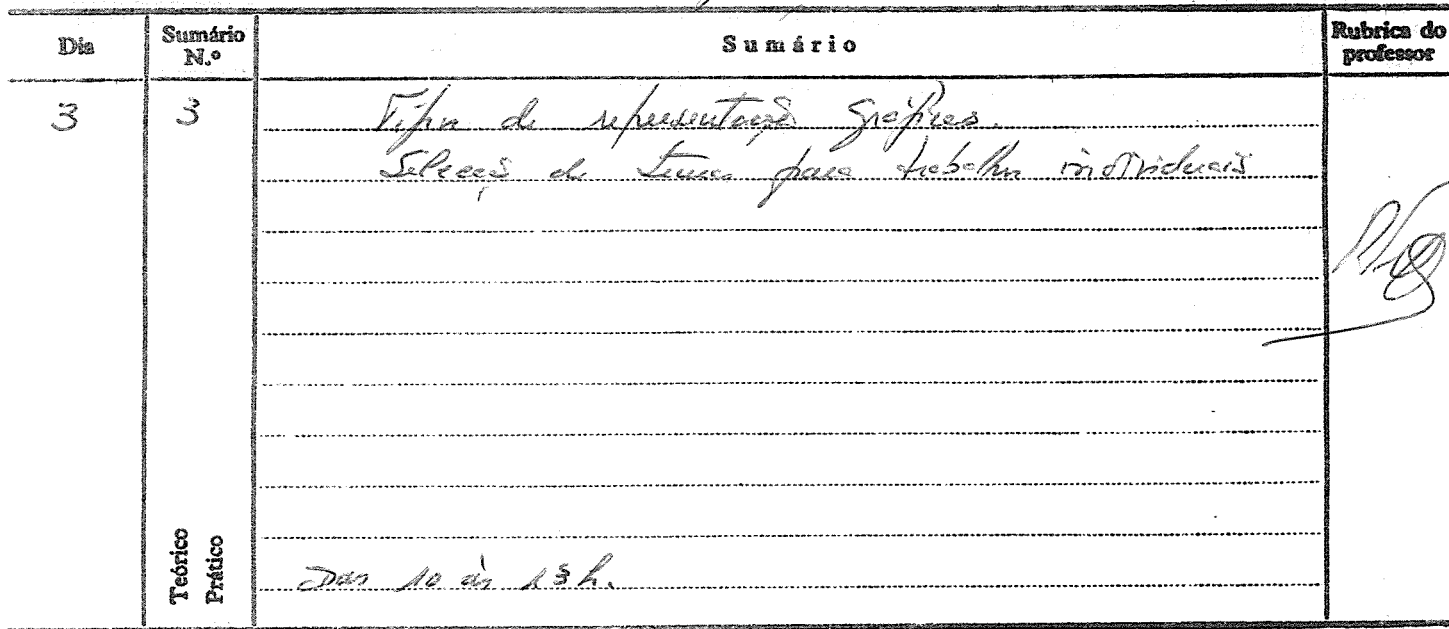 Dia
Sumário N.º
Sumário
Rubrica do professor
3
3
Tipos de representação gráficas.
Selecção de temas para trabalhos individuais
Teórico
Prático
Das 10 às 13h.